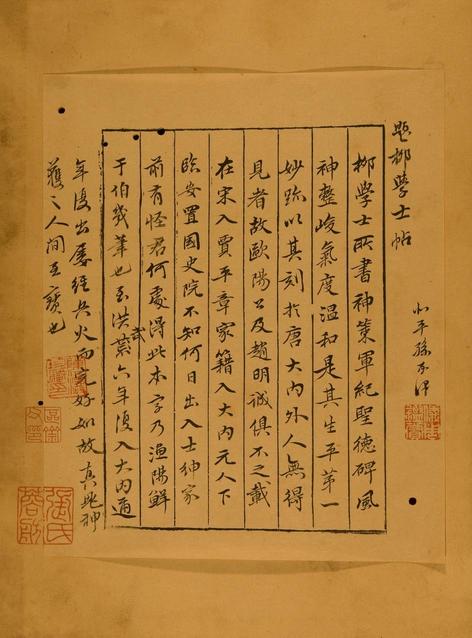 題柳學士帖
北平孫承澤
柳學士所書神策軍紀聖德碑風
神整峻氣度温和是其生平第一
妙跡以其刻於唐大内外人無得
見者故歐陽公及趙明誠俱不之載
在宋入賈平章家籍入大内元人下
臨安置國史院不知何日出入士紳家
前有怪君何處得此本字乃漁陽鮮
于伯幾筆也至洪武六年復入大内
年復出屢經兵火而完好如故真神
護之人間至寶也
張氏